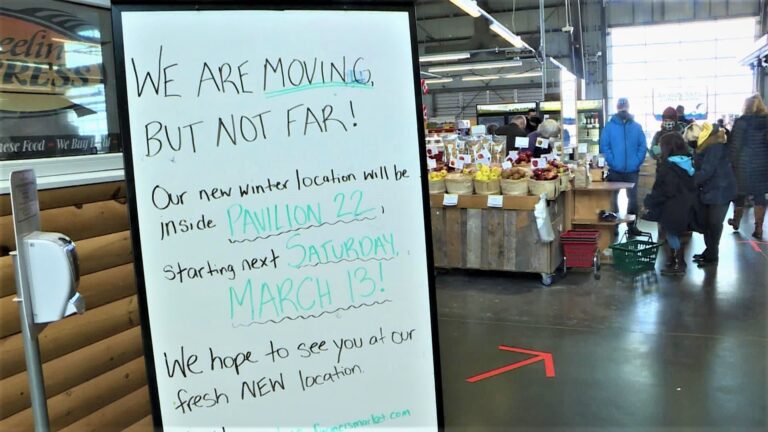 WE ARE MOVING,
BUT NOT FAR!
Our new winter location will be
inside PAVILION 22,
starting next SATURDAY,
MARCH 13!
We hope to see you at our
fresh NEW location.
farmersmarket.com
eelin
PRESS
nese Food • We Buy